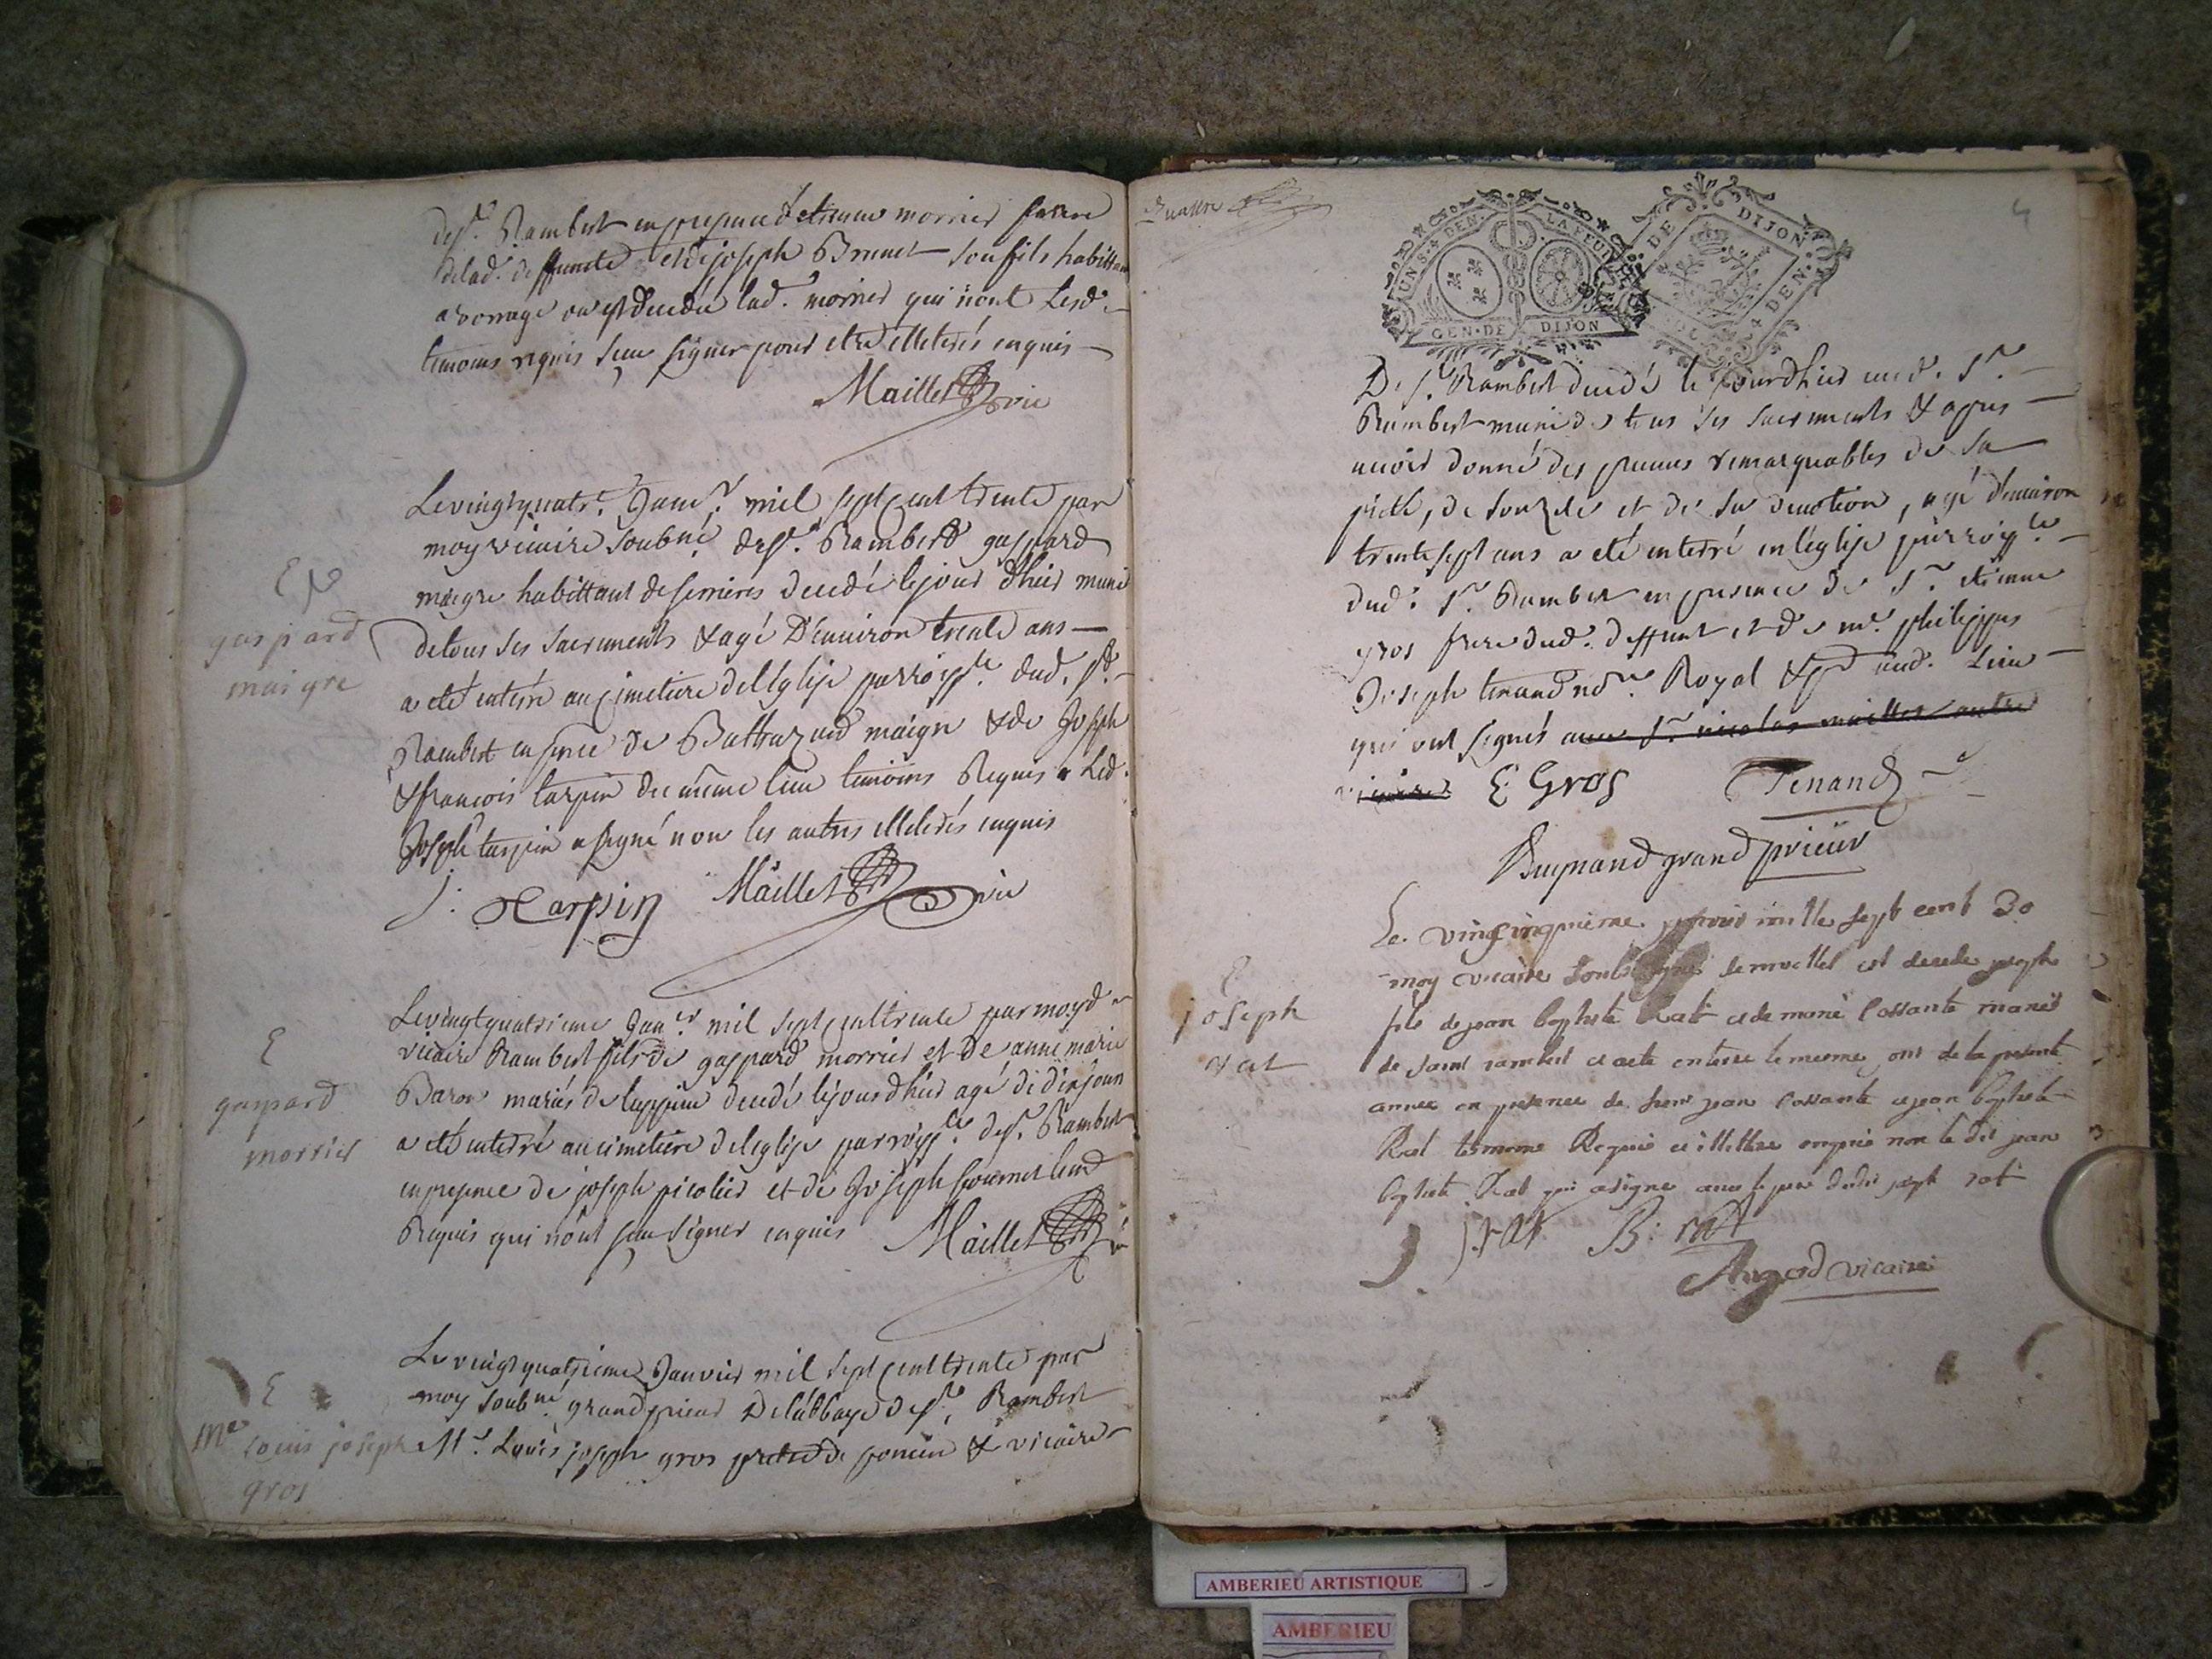 de st. Rambert en presence detienne morrier frere
delad. deffuncte et de joseph Brunet son fils habittans
a vorrage ou est decedée lad. morrier qui n'ont lesd.
temoins requis sceu signer pour etre illeterés enquis
Maillet vic
E
gaspard
maigre
Le vingtquatr.e Janv.r mil sept cent trente par
moy vicaire soubné de st. Rambert gaspard
maigre habittant de serrieres decedé le jour d'hier muni
de tous ses sacrements & agé D'environ trente ans
a eté enterré au cimetiere de l'Eglise parroissle. dud. st.
Rambert en pnce de Baltazard maigre & de Joseph
& francois tarpin du même lieu temoins Requis Led.
Joseph tarpin a signé non les autres illeterés enquis
J. Tarpin Maillet vic
E
gaspard
morrier
Le vingtquatrieme Janv.er mil sept cent trente par moyd
vicaire Rambert fils de gaspard morrier et de anne marie
Baron mariés de lupieu decedé le jour d'hier agé de dix jours
a eté enterré au cimetiere de l'eglise parroissle. de st. Rambert
en presence de joseph picolier et de Joseph fournet
Requis qui n'ont sceu signer enquis Maillet vic
E
Me
Louis joseph
gros
Le vingtquatrieme Janvier mil sept cent trente par
moy soubné grand prieur De l'abbaye de st. Rambert
Mr. Louis joseph gros pretre de poncin & vicaire
quattre
4
UN S. 4 DEN. LA FEUIL
GEN. DE DIJON
DE DIJON
DEN.
De st. Rambert decedé le jourdhier aud. St.
Rambert muni de tous ses sacrements & apres
avoir donné des preuves remarquables de sa
pieté, de son zele et de sa devotion, agé d'environ
trente sept ans a eté enterré en l'église parroissle.
dud. St. Rambert en presence de Sr. etienne
gros frere dud. deffunt et de me. philippes
Joseph tenand not.re Royal & aud. Lieu
qui ont signés avec Sr. nicolas maillet autre
vicaire E Gros Tenand
Buynand grand prieur
E
joseph
rat
Le vingcinquieme janvier mille sept cent 30
moy vicaire soubsigné est decede joseph
fils de jean baptiste Rat et de marie Cossante mariés
de saint rambert et a ete enterre le mesme jour de la presente
annee en presence de sieur jean Cossante et jean baptiste
Rat temoins Requis et illettere enquis non le dit jean
baptiste Rat qui a signe avec le pere dudit joseph rat
J. rat B: rat
vicaire
AMBERIEU ARTISTIQUE
AMBERIEU